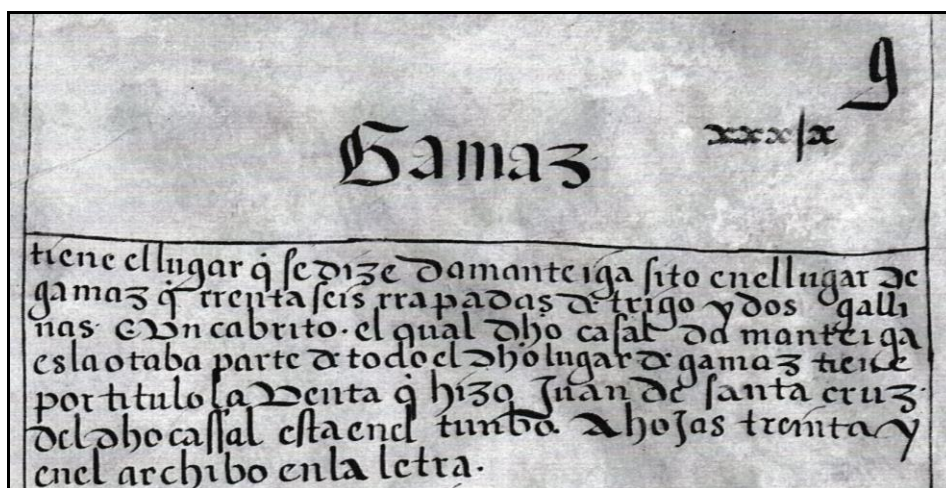 g
xxxix
Gamaz
tiene el lugar q̃ se dize damanteiga sito enel lugar de
gamaz q̃ rrenta seis rrapadas de trigo y dos galli
nas. E Vn cabrito. el qual dho casal da manteiga
es la otaba parte de todo el dho lugar de gamaz tiene
por titulo la Venta q̃ hizo Juan de santa cruz.
del dho cassal esta enel tunbo. A hojas treinta y
enel archibo en la letra.